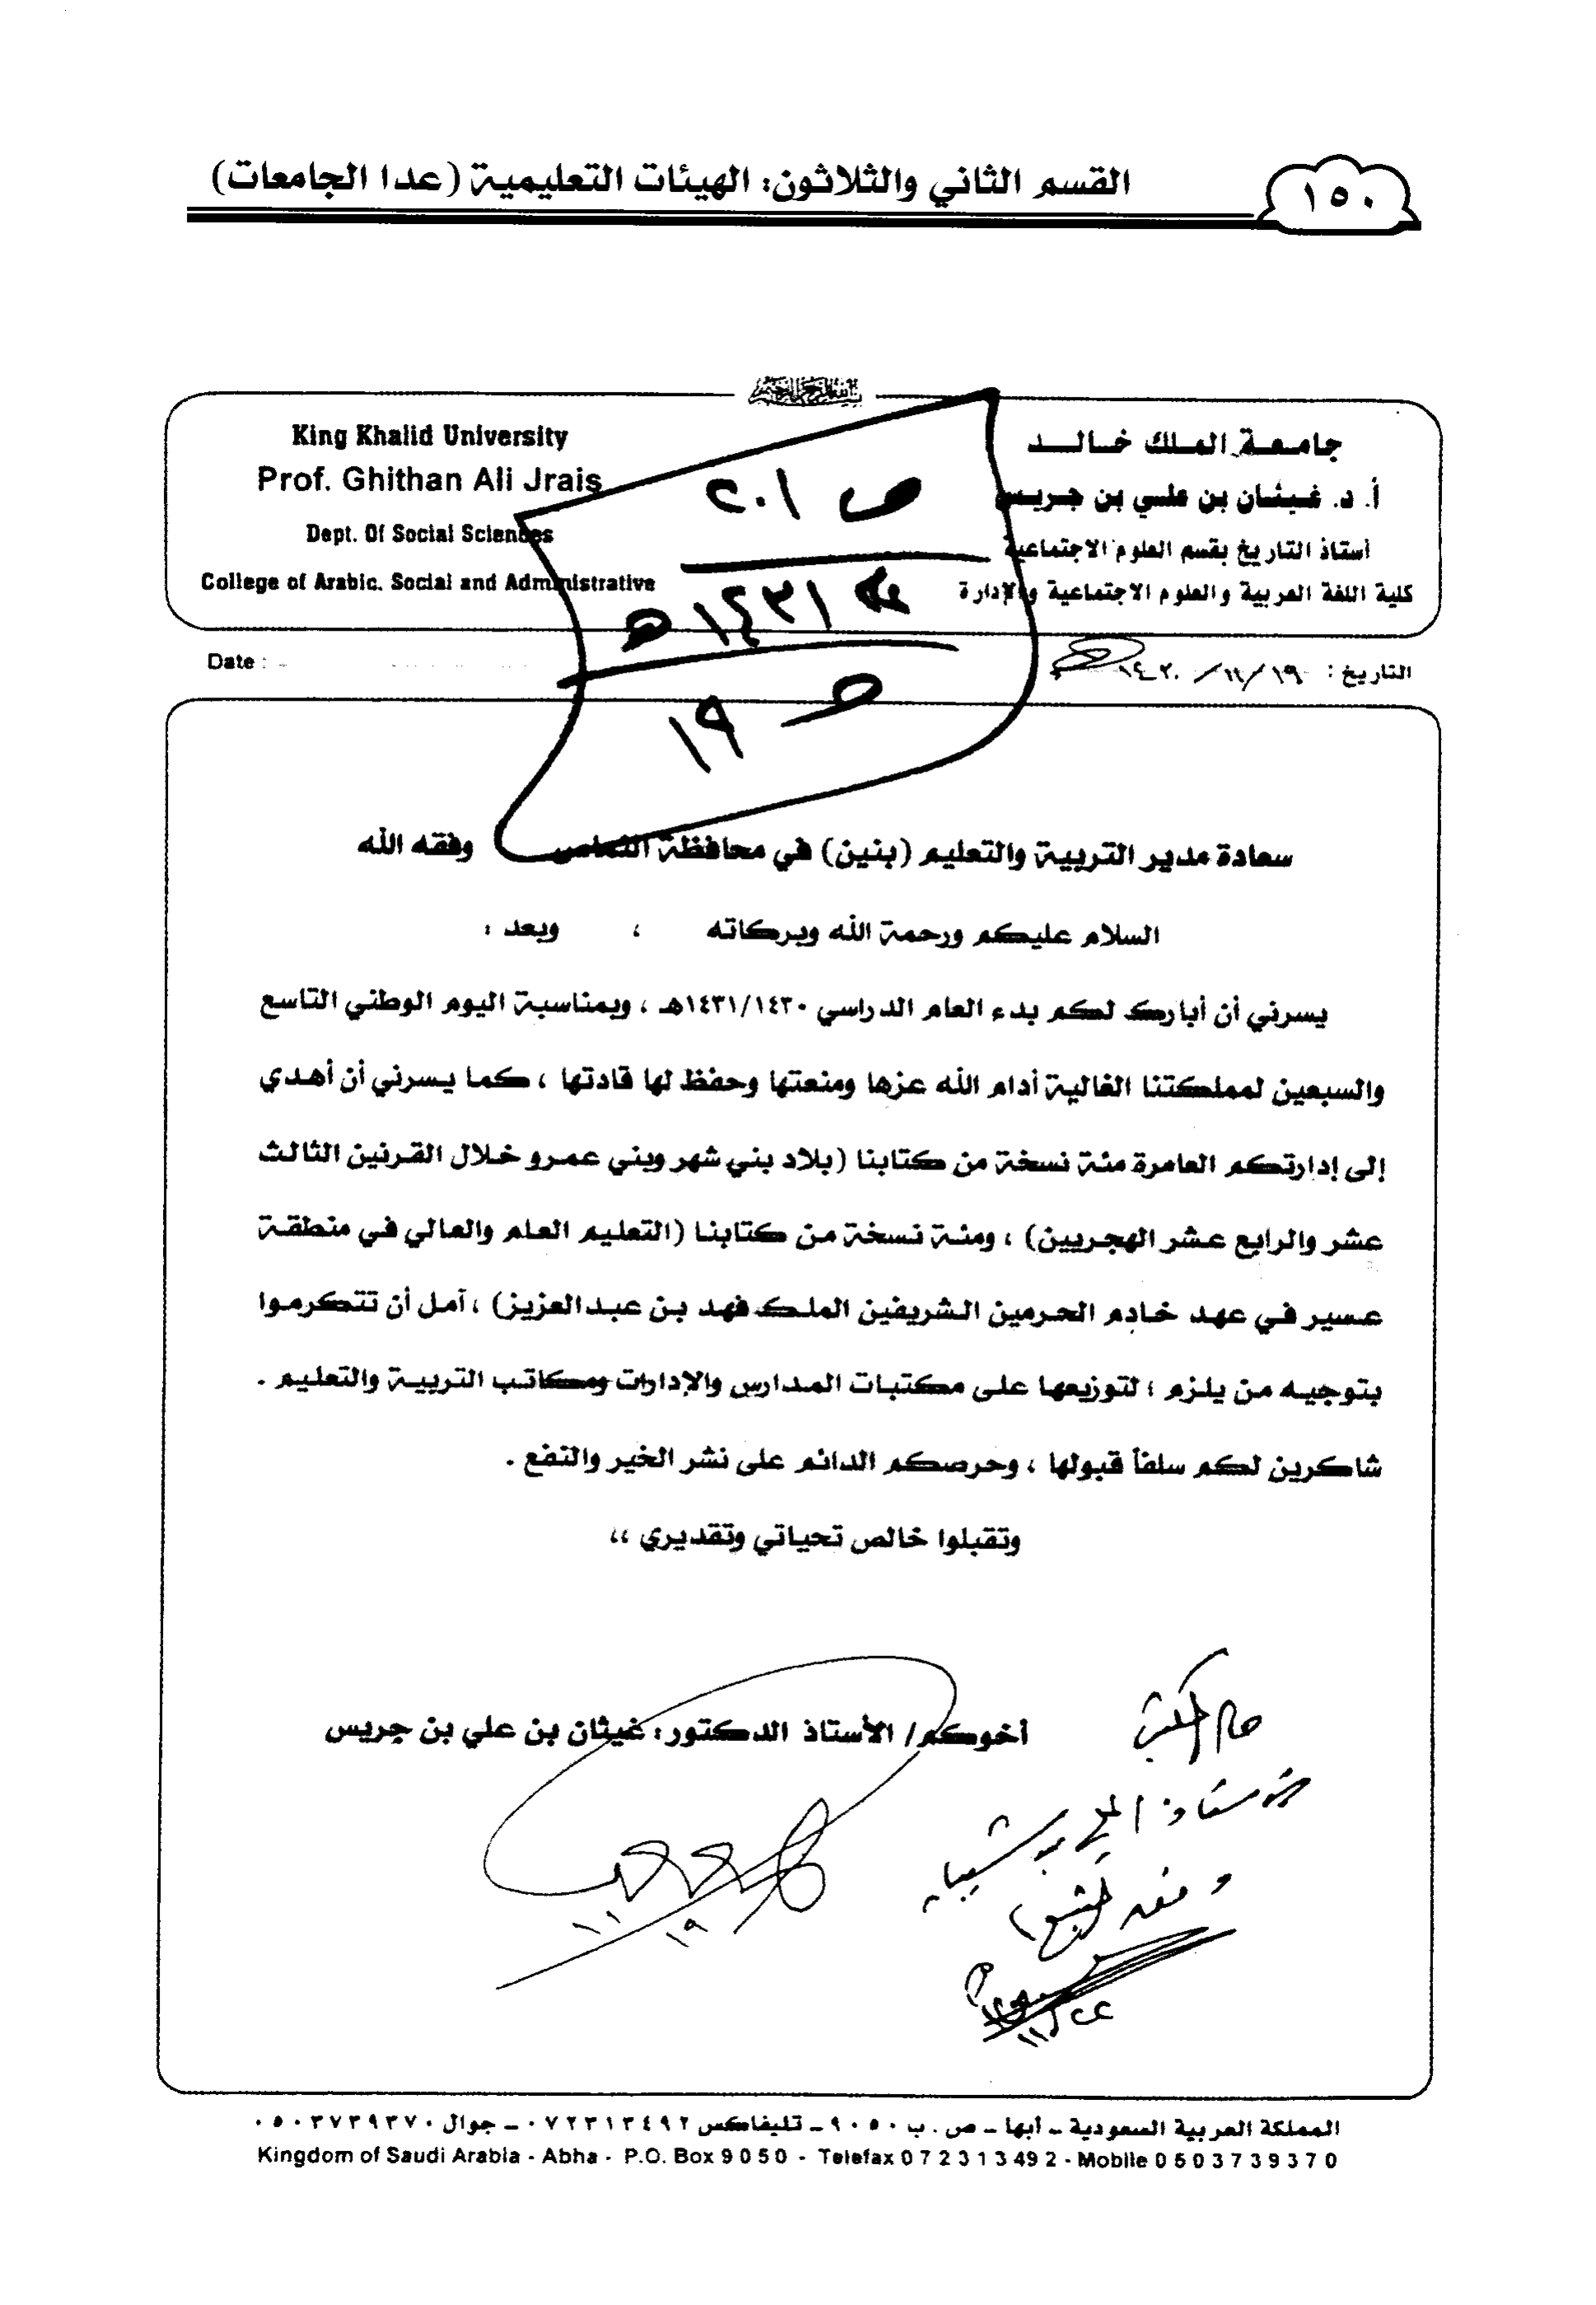 القسم الثاني والثلاثون: الهيئات التعليمية (عدا الجامعات)
١٥٠
جامعة الملك خالد
أ. د. غيثان بن علي بن جريس
أستاذ التاريخ بقسم العلوم الاجتماعية
كلية اللغة العربية والعلوم الاجتماعية والإدارة
King Khalid University
Prof. Ghithan Ali Jrais
Dept. Of Social Sciences
College of Arabic. Social and Administrative
ص ٢٠١
١٤٣١ هـ
ص ١٩
التاريخ : ١٩/ ١١/ ١٤٣٠
Date :
سعادة مدير التربية والتعليم (بنين) في محافظة النماص وفقه الله
السلام عليكم ورحمة الله وبركاته ، وبعد :
يسرني أن أبارك لكم بدء العام الدراسي ١٤٣١/١٤٣٠هـ ، وبمناسبة اليوم الوطني التاسع
والسبعين لمملكتنا الغالية أدام الله عزها ومنعتها وحفظ لها قادتها ، كما يسرني أن أهدي
إلى إدارتكم العامرة مئة نسخة من كتابنا (بلاد بني شهر وبني عمرو خلال القرنين الثالث
عشر والرابع عشر الهجريين) ، ومئة نسخة من كتابنا (التعليم العام والعالي في منطقة
عسير في عهد خادم الحرمين الشريفين الملك فهد بن عبدالعزيز) ، آمل أن تتكرموا
بتوجيه من يلزم ؛ لتوزيعها على مكتبات المدارس والإدارات ومكاتب التربية والتعليم .
شاكرين لكم سلفاً قبولها ، وحرصكم الدائم على نشر الخير والنفع .
وتقبلوا خالص تحياتي وتقديري ،،
أخوكم/ الأستاذ الدكتور: غيثان بن علي بن جريس
١٩ ١١
١١/٢٢
المملكة العربية السعودية ـ أبها ـ ص . ب ٩٠٥٠ ـ تليفاكس ٠٧٢٣١٣٤٩٢ ـ جوال ٠٥٠٣٧٣٩٣٧٠
Kingdom of Saudi Arabia - Abha - P.O. Box 9050 - Telefax 072313492 - Mobile 0503739370